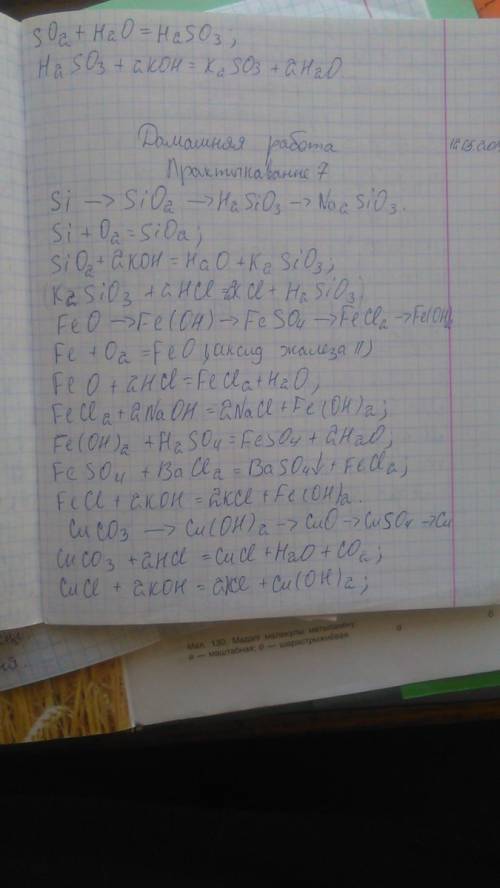 SO2 + H2O = H2SO3;
H2SO3 + 2KOH = K2SO3 + 2H2O
Домашняя работа
Практыкаванне 7
Si → SiO2 → H2SiO3 → Na2SiO3.
Si + O2 = SiO2;
SiO2 + 2KOH = H2O + K2SiO3;
(K2SiO3 + 2HCl = 2KCl + H2SiO3)
FeO → Fe(OH) → FeSO4 → FeCl2 → Fe(OH)2
Fe + O2 = FeO (аксид жалеза II)
FeO + 2HCl = FeCl2 + H2O;
FeCl2 + 2NaOH = 2NaCl + Fe(OH)2;
Fe(OH)2 + H2SO4 = FeSO4 + 2H2O;
FeSO4 + BaCl2 = BaSO4↓ + FeCl2;
FeCl + 2KOH = 2KCl + Fe(OH)2.
CuCO3 → Cu(OH)2 → CuO → CuSO4 → Cu
CuCO3 + 2HCl = CuCl + H2O + CO2;
CuCl + 2KOH = 2KCl + Cu(OH)2;
Мал. 130. Мадэлі малекулы
а — маштабная; б — шарастрыжнёвая
а
б